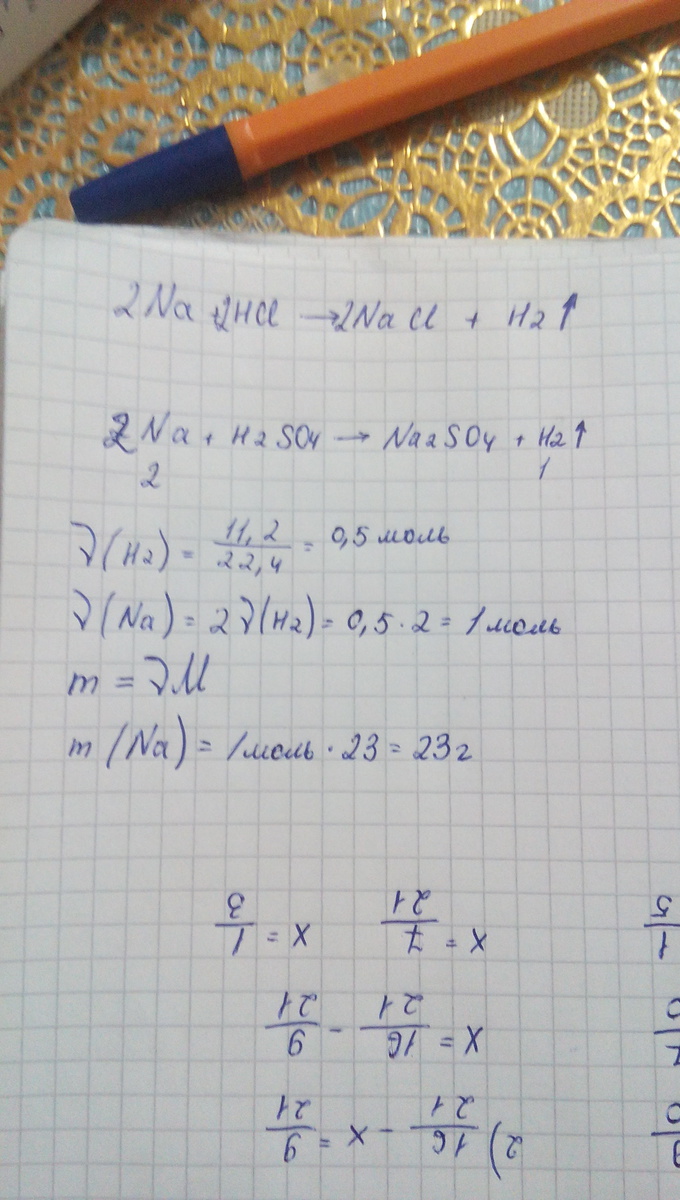 2Na + 2HCl → 2NaCl + H2↑
2Na + H2SO4 → Na2SO4 + H2↑
2 1
ν(H2) = 11,2/22,4 = 0,5 моль
ν(Na) = 2ν(H2) = 0,5 · 2 = 1 моль
m = νM
m(Na) = 1 моль · 23 = 23 г
2) 16/21 - x = 9/21
x = 16/21 - 9/21
x = 7/21 x = 1/3
1/5